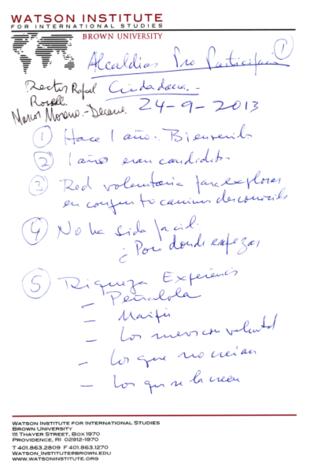 WATSON INSTITUTE
FOR INTERNATIONAL STUDIES
BROWN UNIVERSITY
1
Alcaldias Pro Participación
Ciudadana.-
Rector Rafael
Rosell
Moreno - Decano
24-9-2013
1 Hace 1 año. Bienvenida
2 1 año eran candidatos
3 Red voluntaria para explorar
en conjunto caminos desconocidos
4 No ha sido fácil
¿Por donde empezar
5 Riqueza Experiencias
- Peñalolen
- Maipú
- Los
- Los que no creian
- Los que si creen
WATSON INSTITUTE FOR INTERNATIONAL STUDIES
BROWN UNIVERSITY
111 THAYER STREET, BOX 1970
PROVIDENCE, RI 02912-1970
T 401.863.2809 F 401.863.1270
WATSON_INSTITUTE@BROWN.EDU
WWW.WATSONINSTITUTE.ORG